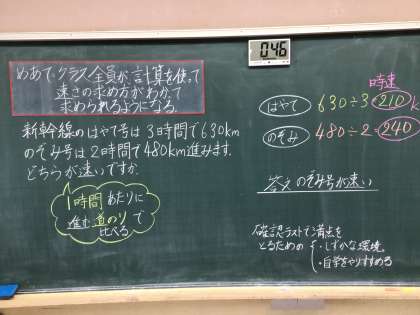 めあて クラス全員が、計算を使って
速さの求め方がわかって
求められるようになる。
新幹線のはやて号は3時間で630km
のぞみ号は2時間で480km進みます。
どちらが速いですか。
1時間あたりに
進む道のりで
比べる
0:46
時速
はやて 630÷3=210
のぞみ 480÷2=240
答え のぞみ号が速い
確認テストで満点を
とるための
・しずかな環境。
・自学をやりすすめる